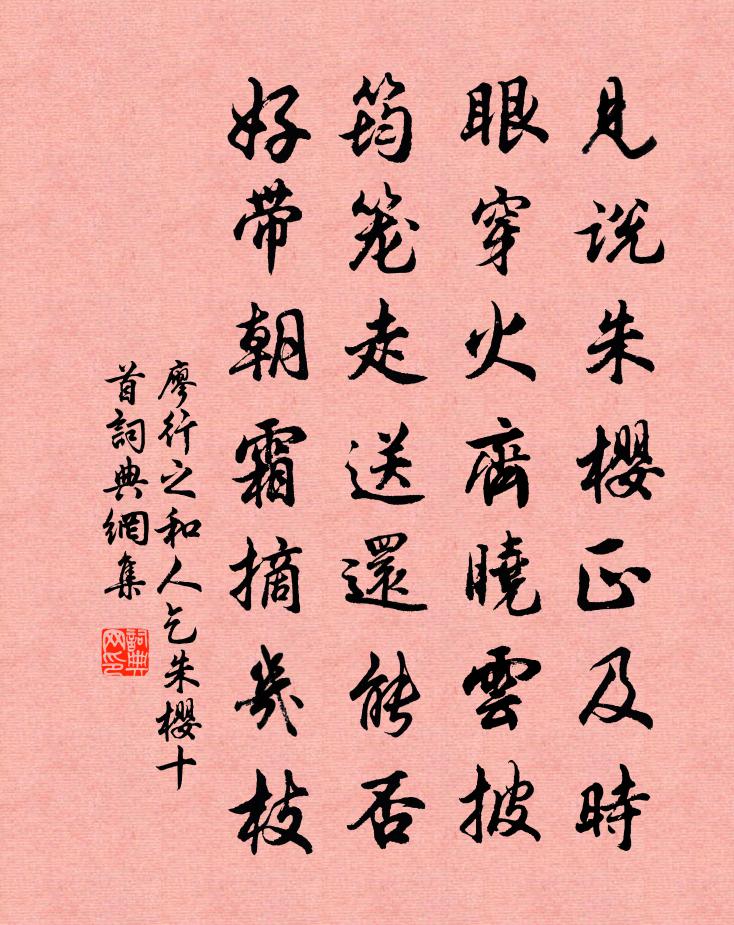 見説朱櫻正及時
眼穿火齊曉雲披
筠笼走送還能否
好帶朝霜摘幾枝
廖行之和人乞朱櫻十
首詞典網集
詞典网印